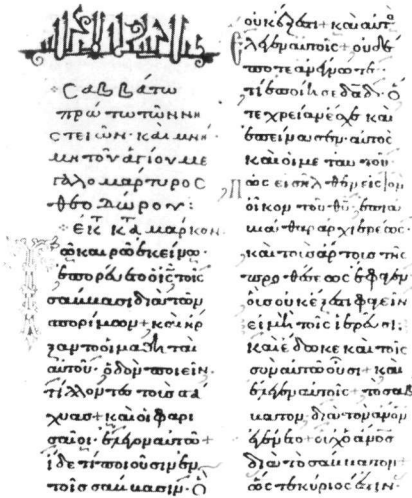 Σαββάτω
πρώτω τῶν νη
στειῶν· καὶ μνή
μη τοῦ ἁγίου με
γαλομάρτυρος
θεοδώρου:
ἐκ τ κατὰ μάρκον
Τῶ καιρῶ ἐκείνω·
ἐπορεύετο ὁ ις τοῖς
σάββασι διὰ τῶν
σπορίμων + καὶ ἤρ
ξαντο οἱ μαθηταὶ
αὐτοῦ· ὁδὸν ποιεῖν·
τίλλοντες τοὺς στά
χυας + καὶ οἱ φαρι
σαῖοι· ἔλεγον αὐτῶ +
ἴδε τί ποιοῦσιν ἐν
τοῖς σάββασιν· ὃ
οὐκ ἔξεστι + καὶ αὐτὸς
ἔλεγεν αὐτοῖς + οὐδέ
ποτε ἀνέγνωτε·
τί ἐποίησε δαδ· ὅ
τε χρείαν ἔσχε καὶ
ἐπείνασεν· αὐτὸς
καὶ οἱ μετ αὐτοῦ·
πῶς εἰσῆλθεν εἰς τὸν
οἶκον τοῦ θυ ἐπὶ ἀ
βιάθαρ ἀρχιερέως·
καὶ τοὺς ἄρτους τῆς
προθέσεως ἔφαγεν·
οὓς οὐκ ἔξεστι φαγεῖν
εἰ μὴ τοῖς ἱερεῦσι·
καὶ ἔδωκε καὶ τοῖς
σὺν αὐτῶ οὖσι + καὶ
ἔλεγεν αὐτοῖς + τὸ σάβ
βατον διὰ τὸν ἄνον
ἐγένετο + οὐχ ὁ ἄνος
διὰ τὸ σάββατον +
ὥστε κύριός ἐστιν·